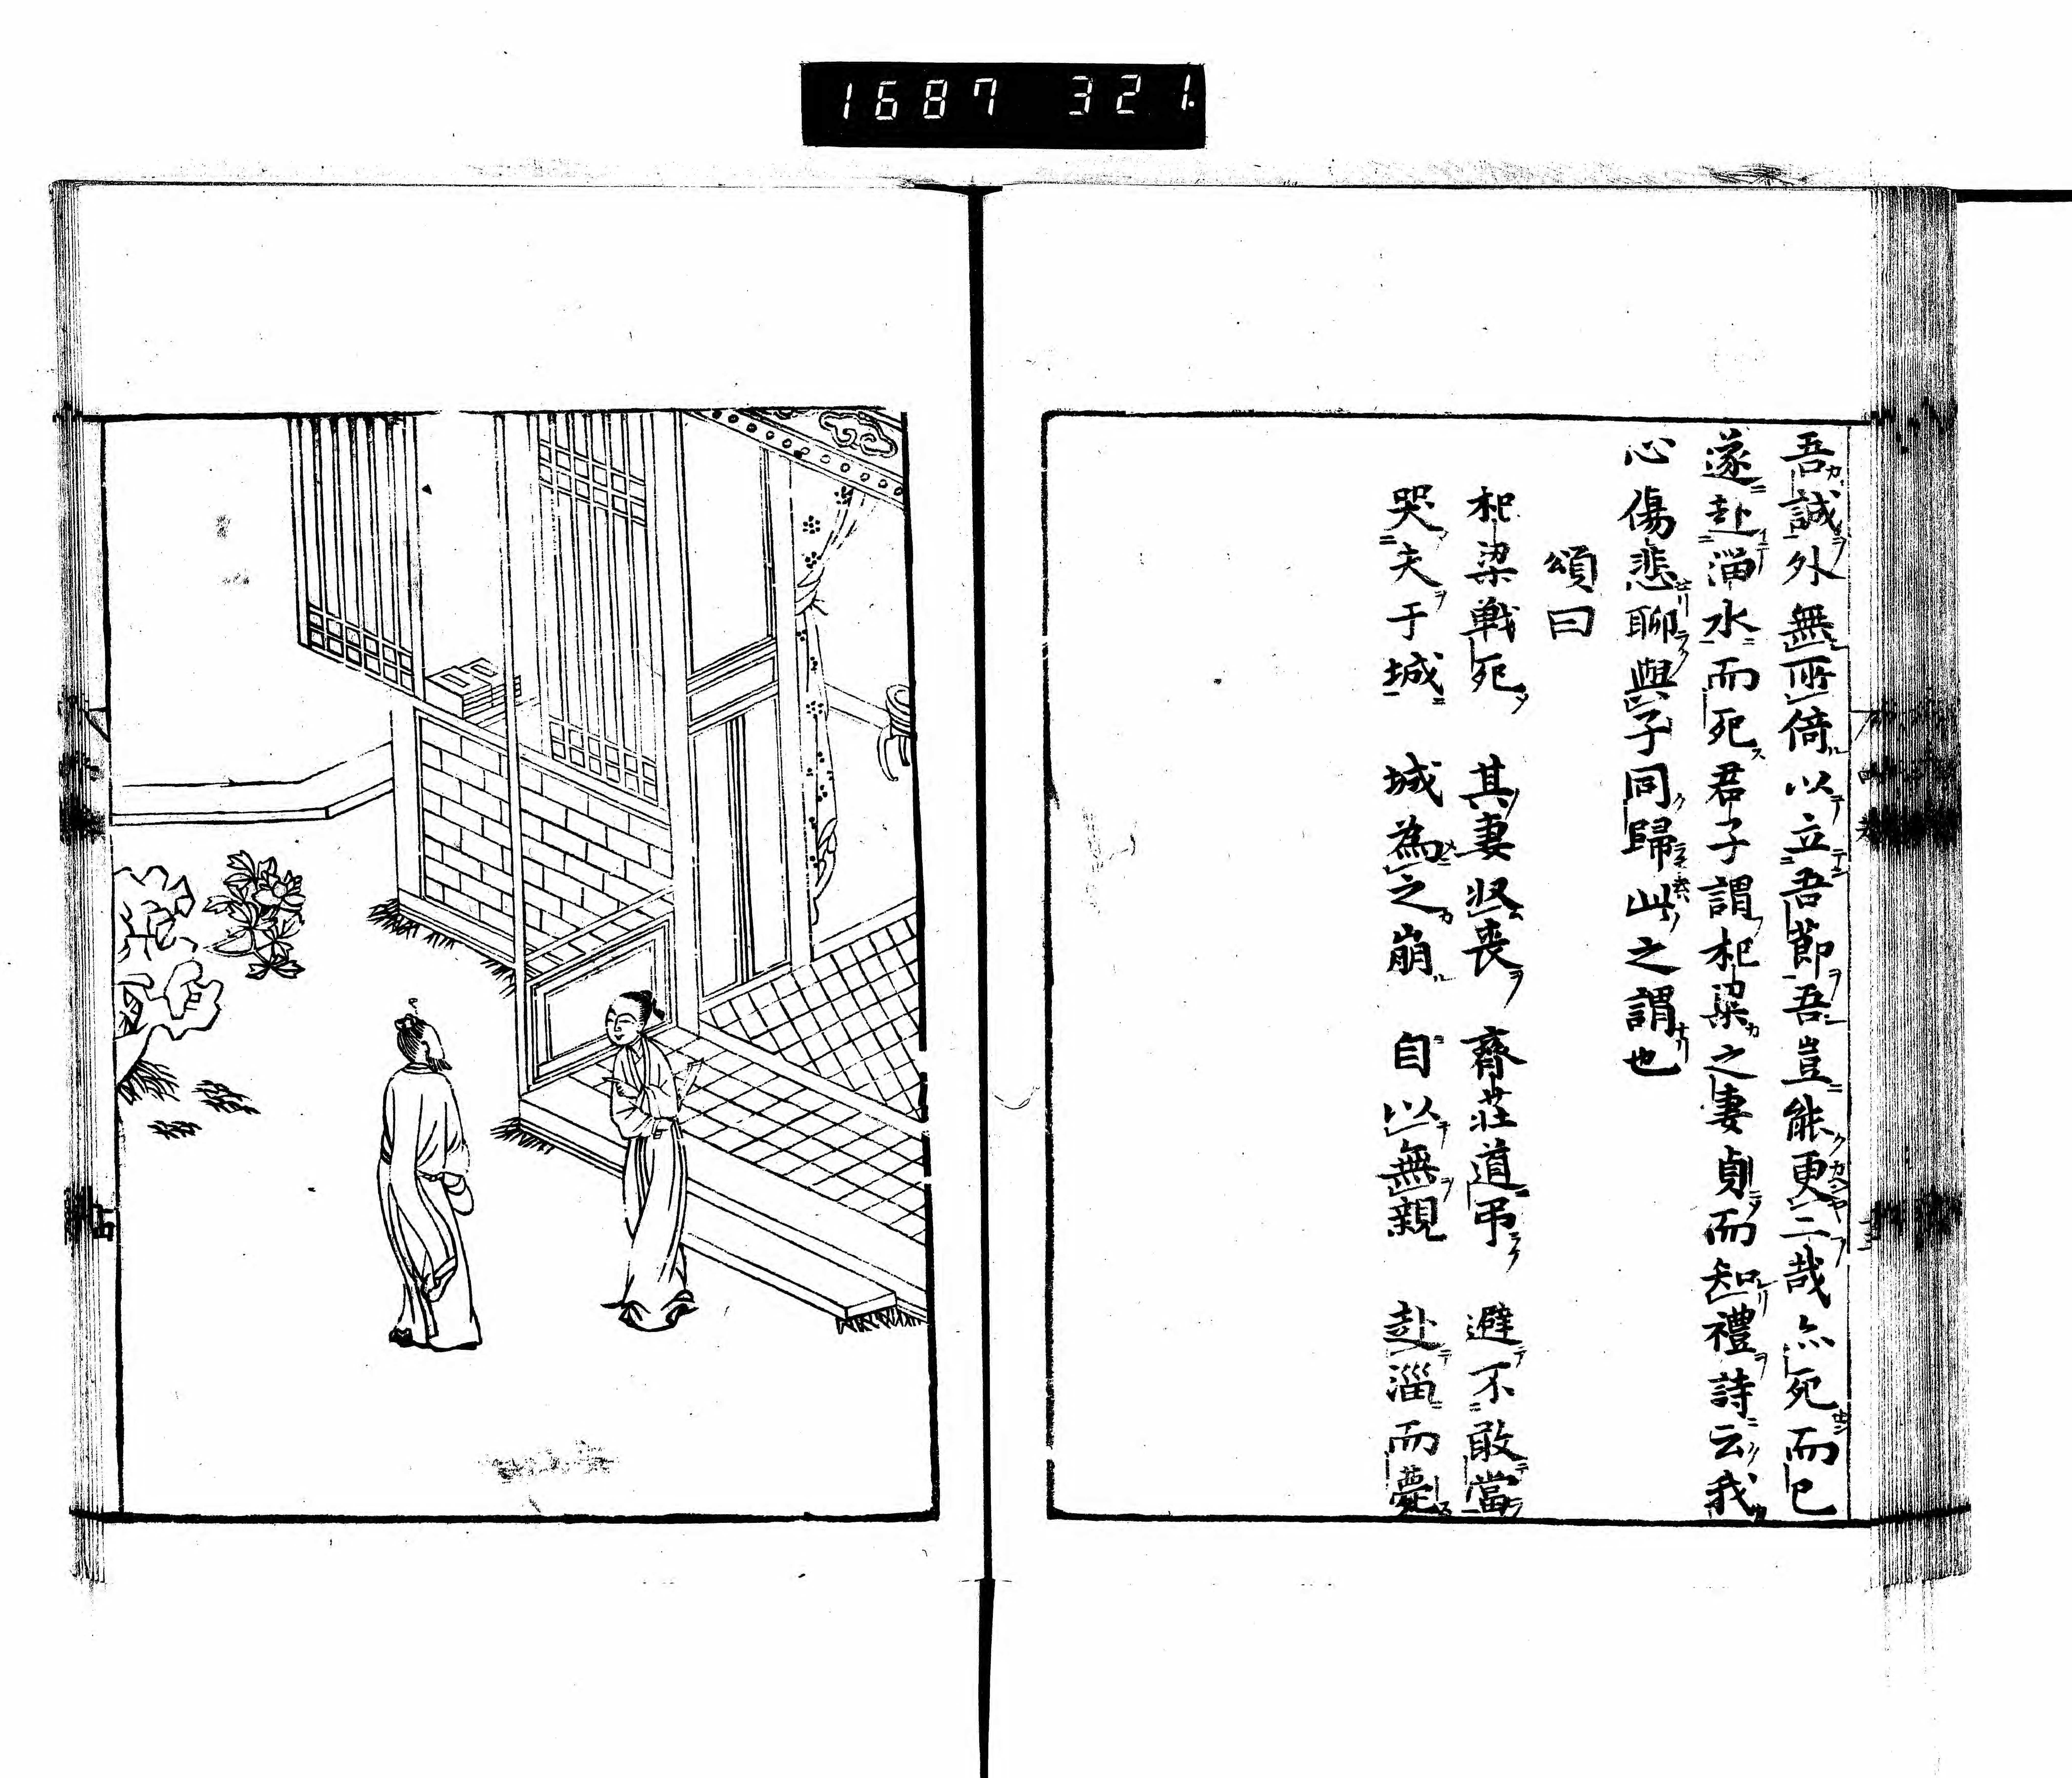 1687 321.
吾誠外無所倚以立吾節吾豈能更二哉亦死而已
遂赴淄水而死君子謂杞梁之妻貞而知禮詩云我
心傷悲聊與子同歸此之謂也
頌曰
杞梁戰死 其妻收喪 齊莊道弔 避不敢當
哭夫于城 城為之崩 自以無親 赴淄而薨